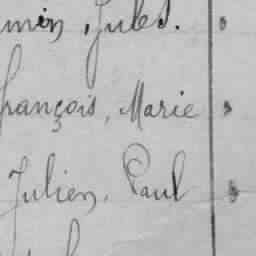 min, Jules.
françois, Marie
Julien, Paul